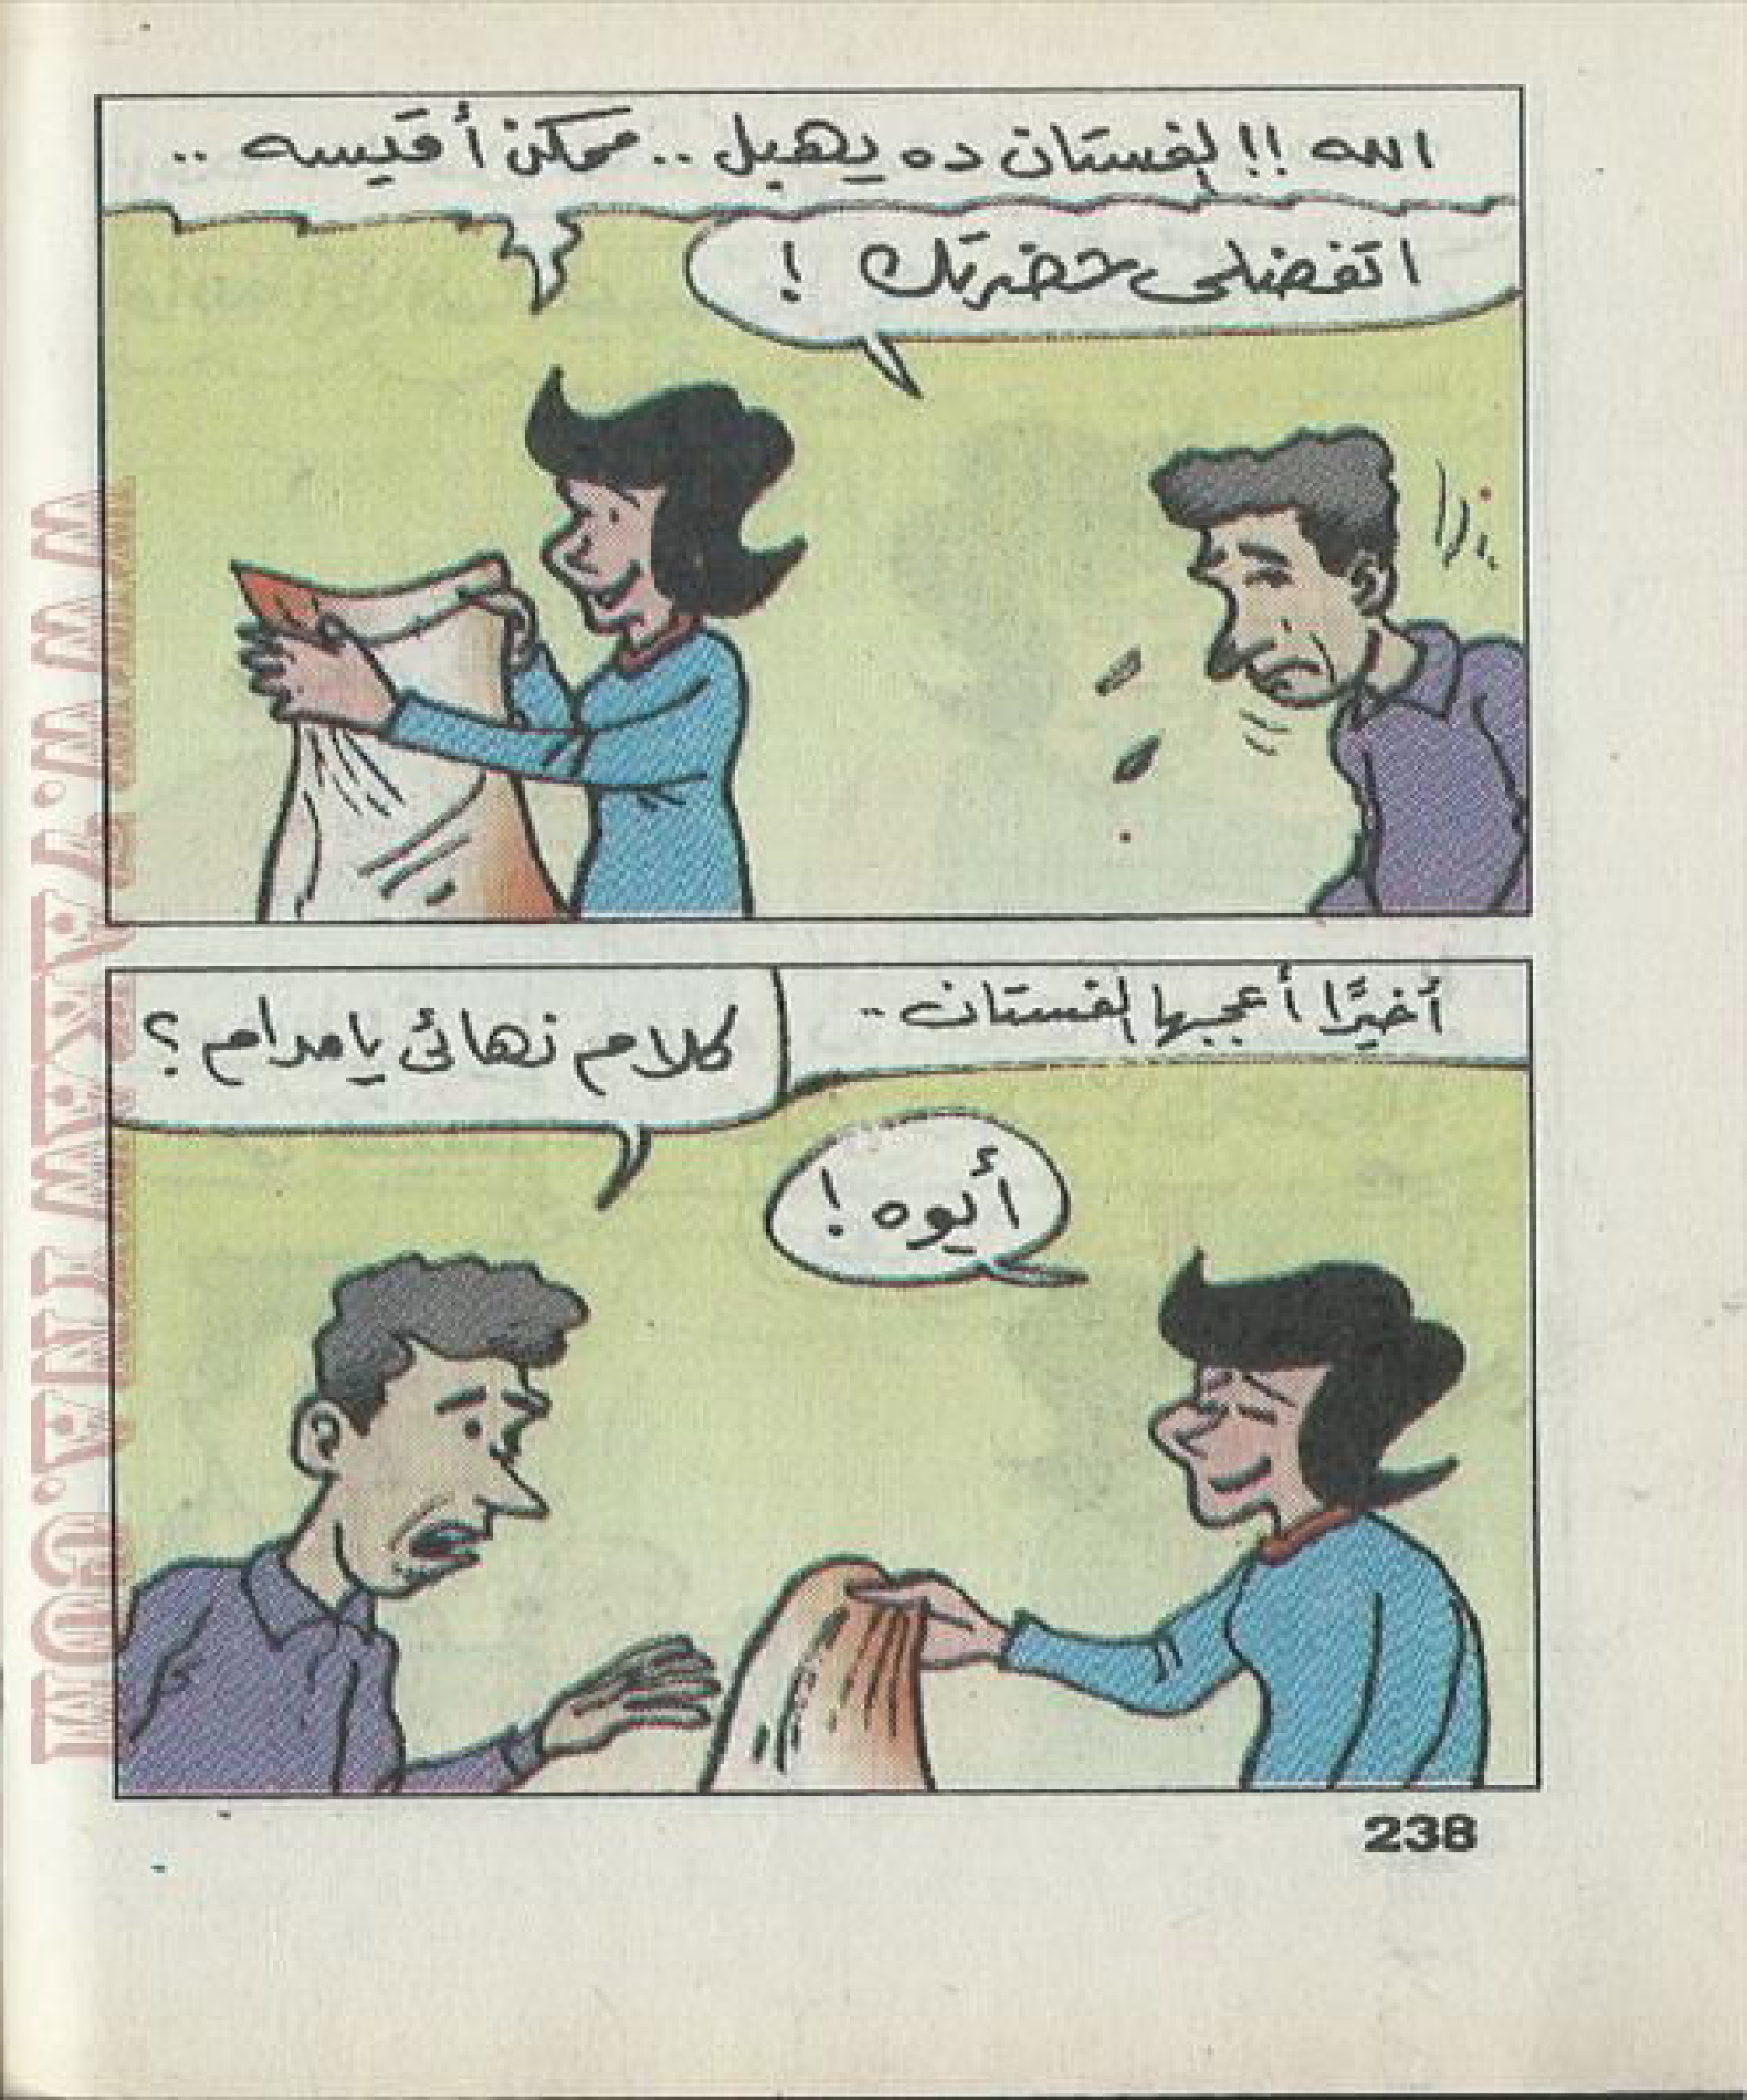 الله !! الفستان ده يهبل .. ممكن أقيسه ..
اتفضلى حضرتك !
أخيرًا أعجبها الفستان ..
كلام نهائى يا مدام ؟
أيوه !
238